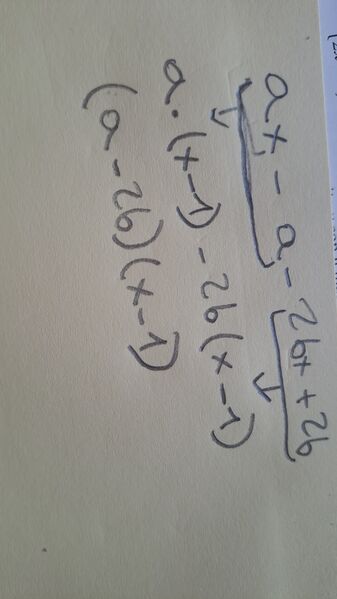 ax - a - 2bx + 2b
a·(x-1) - 2b(x-1)
(a-2b)(x-1)